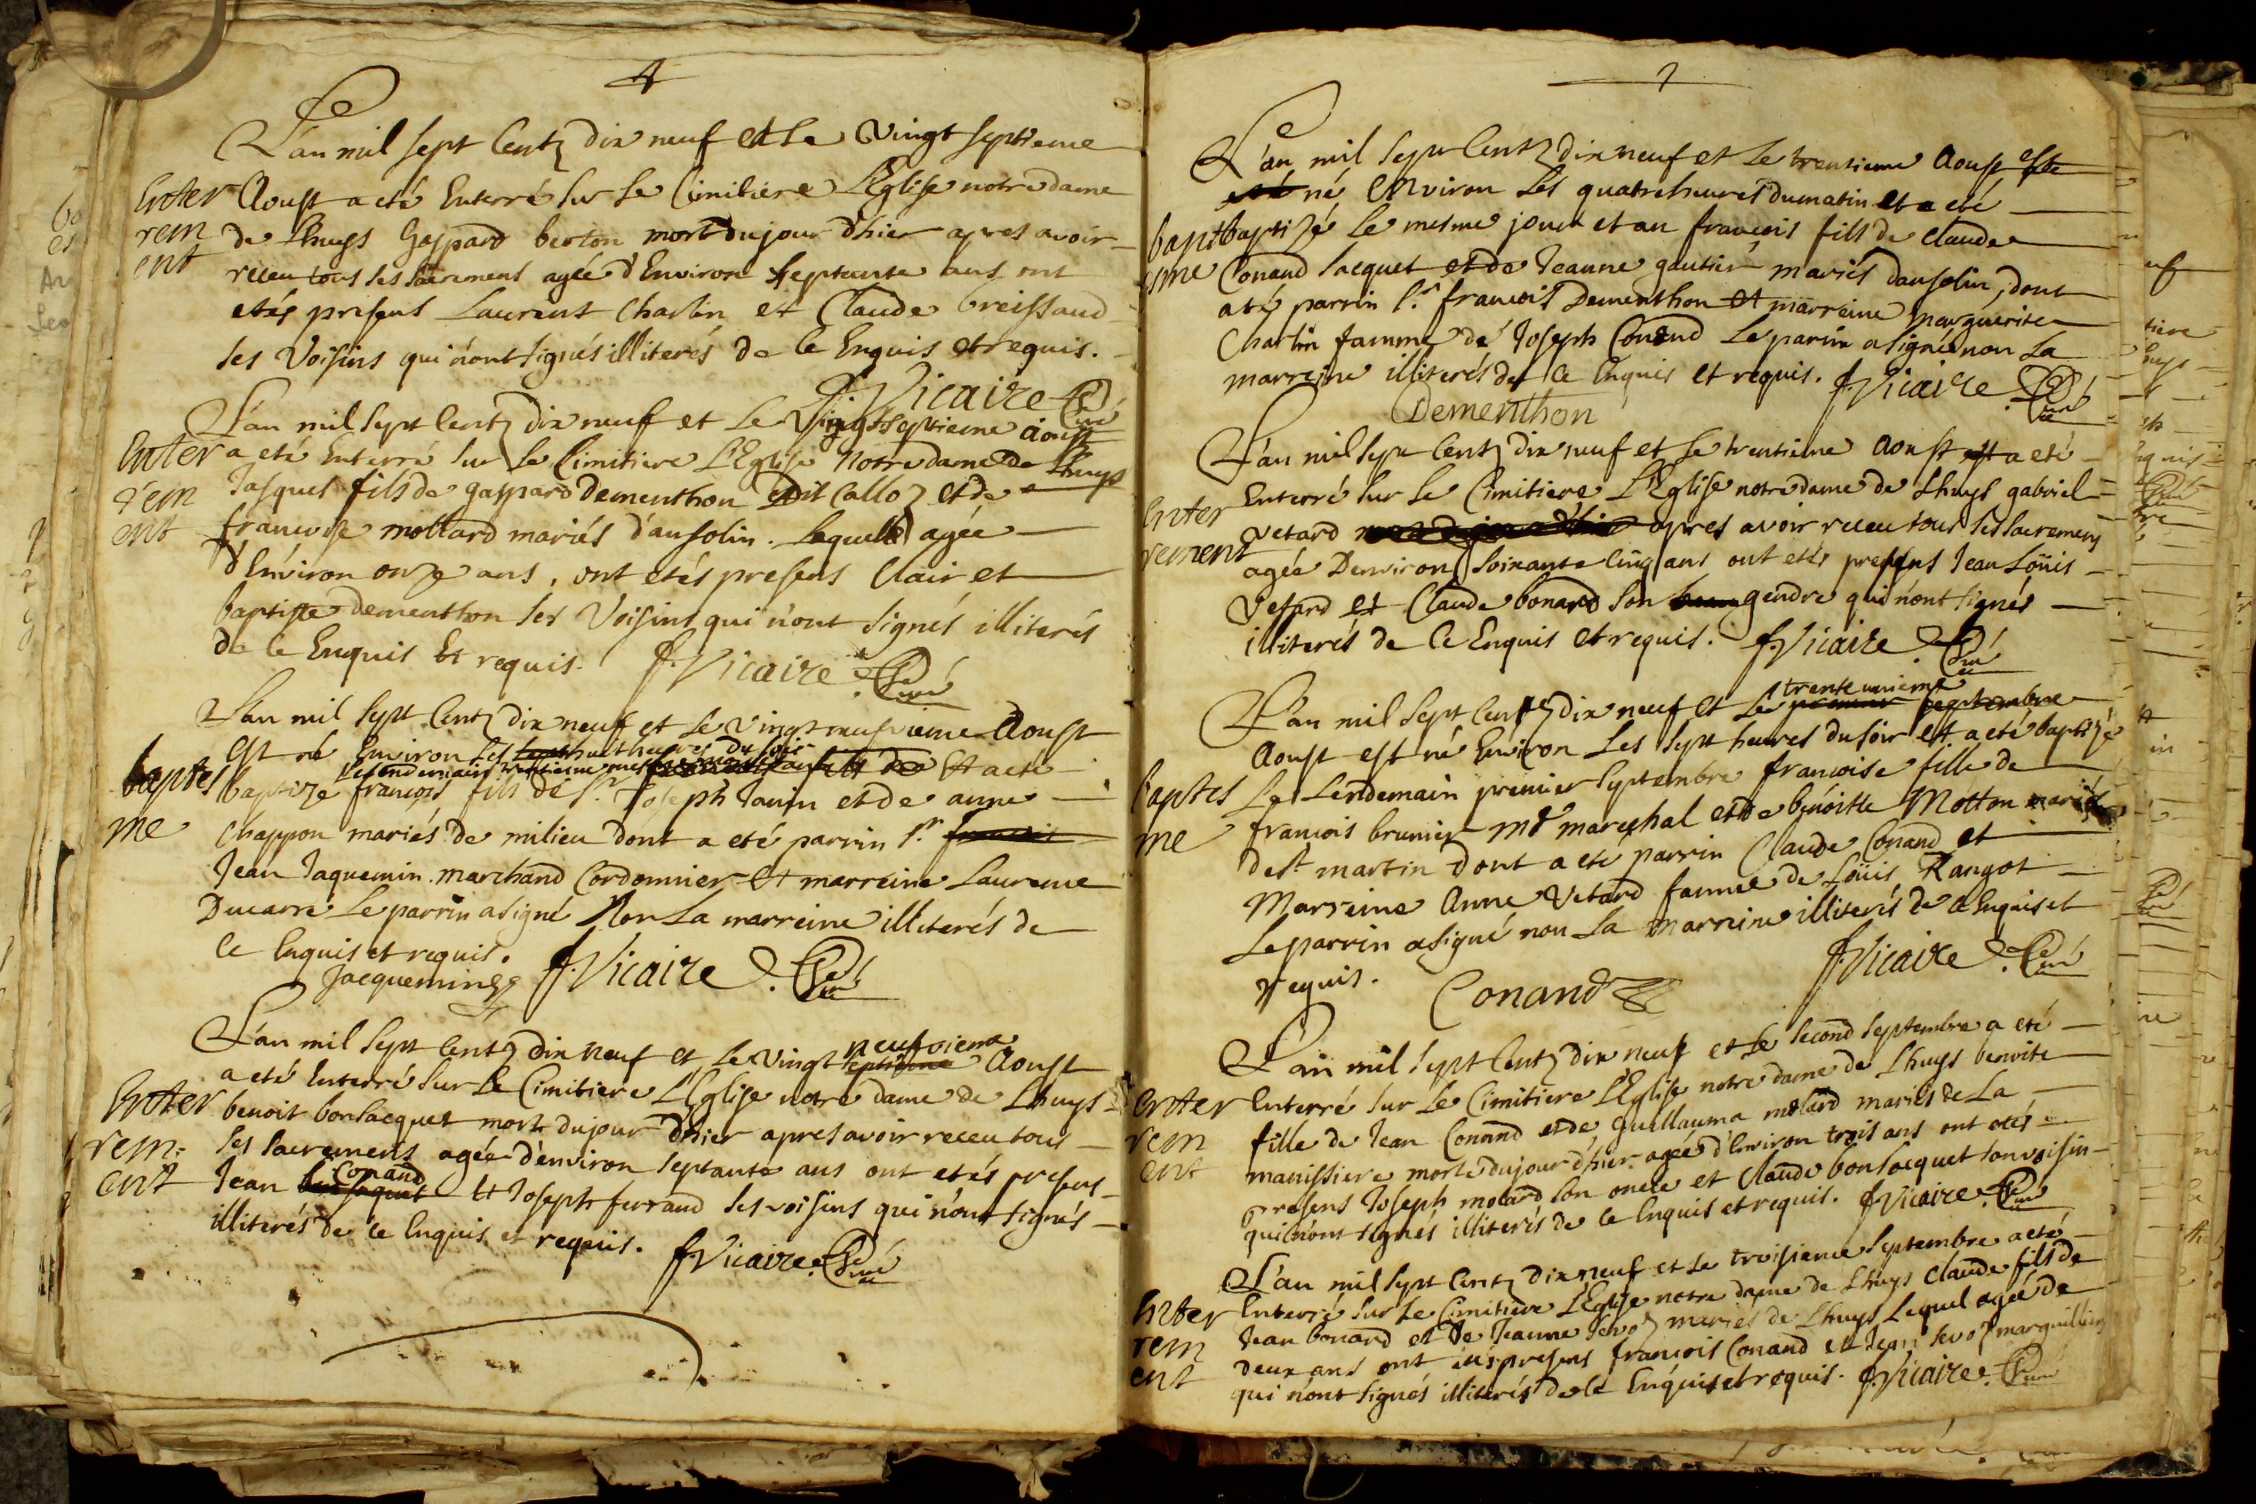 L'an mil sept Centz dix neuf et le Vingt septieme
Enter Aoust a eté Enterré sur le Cimitiere L'Eglise notre dame
rem de Lhuys Gaspard berton mort du jour d'hier apres avoir
ent receu tous ses sacremens agée d'Environ septante ans ont
etés presens Laurent Charlin et Claude breissaud
ses Voisins qui n'ont signés illiterés de Ce Enquis et requis.
f. Vicaire Curé
L'an mil sept Centz dix neuf et le Vingtseptieme aoust
Enter a eté Enterré sur le Cimitiere L'Eglise Notre dame de Lhuys
rem Jasques fils de gaspard dementhon dit Calloz et de
ent francoise mollard mariés d'ansolin. Lequelle agée
d'Environ onze ans, ont etés presens Clair et
baptiste dementhon ses Voisins qui n'ont signés illiterés
de Ce Enquis Et requis. f. Vicaire Curé
L'an mil sept Centz dix neuf et le Vingt neufvieme Aoust
est né Environ les huit heures du soir
baptes baptize françois fils de Sr. Joseph Janin et de anne
me Chappon mariés de milieu dont a eté parrin Sr. francois
Jean Jaquemin marchand Cordonnier et marreine Laurence
Ducarre Le parrin a signé Non La marreine illiterés de
Ce Enquis et requis.
Jacquemin f. Vicaire Curé
L'an mil sept Centz dix neuf et le vingt septieme neufvieme Aoust
a eté Enterré sur le Cimitiere L'Eglise notre dame de Lhuys
Enter benoit bonJacquet mort du jour d'hier apres avoir receu tous
rem: ses sacremens agée d'environ septante ans ont etés presens
ent Jean Conand et Joseph ferrand ses voisins qui n'ont signés
illiterés de Ce Enquis et requis. f. Vicaire Curé
L'an mil sept Centz dix neuf et le trentieme Aoust
né environ les quatre heures du matin et a eté
bapt baptizé le mesme jour et an francois fils de Claude
esme Conand Jacquet et de Jeanne gautier mariés d'ansolin, dont
a eté parrin Sr. francois Dementhon et marreine marguerite
Charlin famme de Joseph Conand Le parrin a signé non La
marreine illiterés de Ce Enquis et requis. f. Vicaire Curé
Dementhon
L'an mil sept Centz dix neuf et le trentieme Aoust a eté
Enter Enterré sur le Cimitiere L'Eglise notre dame de Lhuys gabriel
rement vetard apres avoir receu tous ses sacremens
agée D'environ soixante Cinq ans ont etés presens Jean Loüis
Vetard et Claude bonard son gendre qui n'ont signés
illiterés de Ce Enquis et requis. f. Vicaire Curé
L'an mil sept Centz dix neuf et Le premier septembre trente unieme
Aoust est né Environ Les sept heures du soir et a eté baptizé
baptes Le Lendemain premier septembre francoise fille de
me francois brunier Md mareschal et de benoitte Motton mariés
de st martin dont a eté parrin Claude Conand et
Marreine Anne Vetard famme de Loüis Rangot
Le parrin a signé non La marreine illiterés de Ce Enquis et
requis. Conand f. Vicaire Curé
L'an mil sept Centz dix neuf et le second septembre a eté
Enter Enterré sur Le Cimitiere L'Eglise notre dame de Lhuys benoite
rem fille de Jean Conand et de guillauma molard mariés de La
ent manissiere morte du jour d'hier agée d'Environ trois ans ont etés
presens Joseph molard son oncle et Claude bonJacquet son voisin
qui n'ont signés illiterés de Ce Enquis et requis. f. Vicaire Curé
L'an mil sept Centz dix neuf et le troisieme septembre a eté
Enter Enterré sur Le Cimitiere L'Eglise notre dame de Lhuys Claude fils de
rem Jean bonard et de Jeanne sevoz mariés de Lhuys Lequel agée de
ent deux ans ont etés presens francois Conand et Jean sevoz marguilliers
qui n'ont signés illiterés de Ce Enquis et requis. f. Vicaire Curé